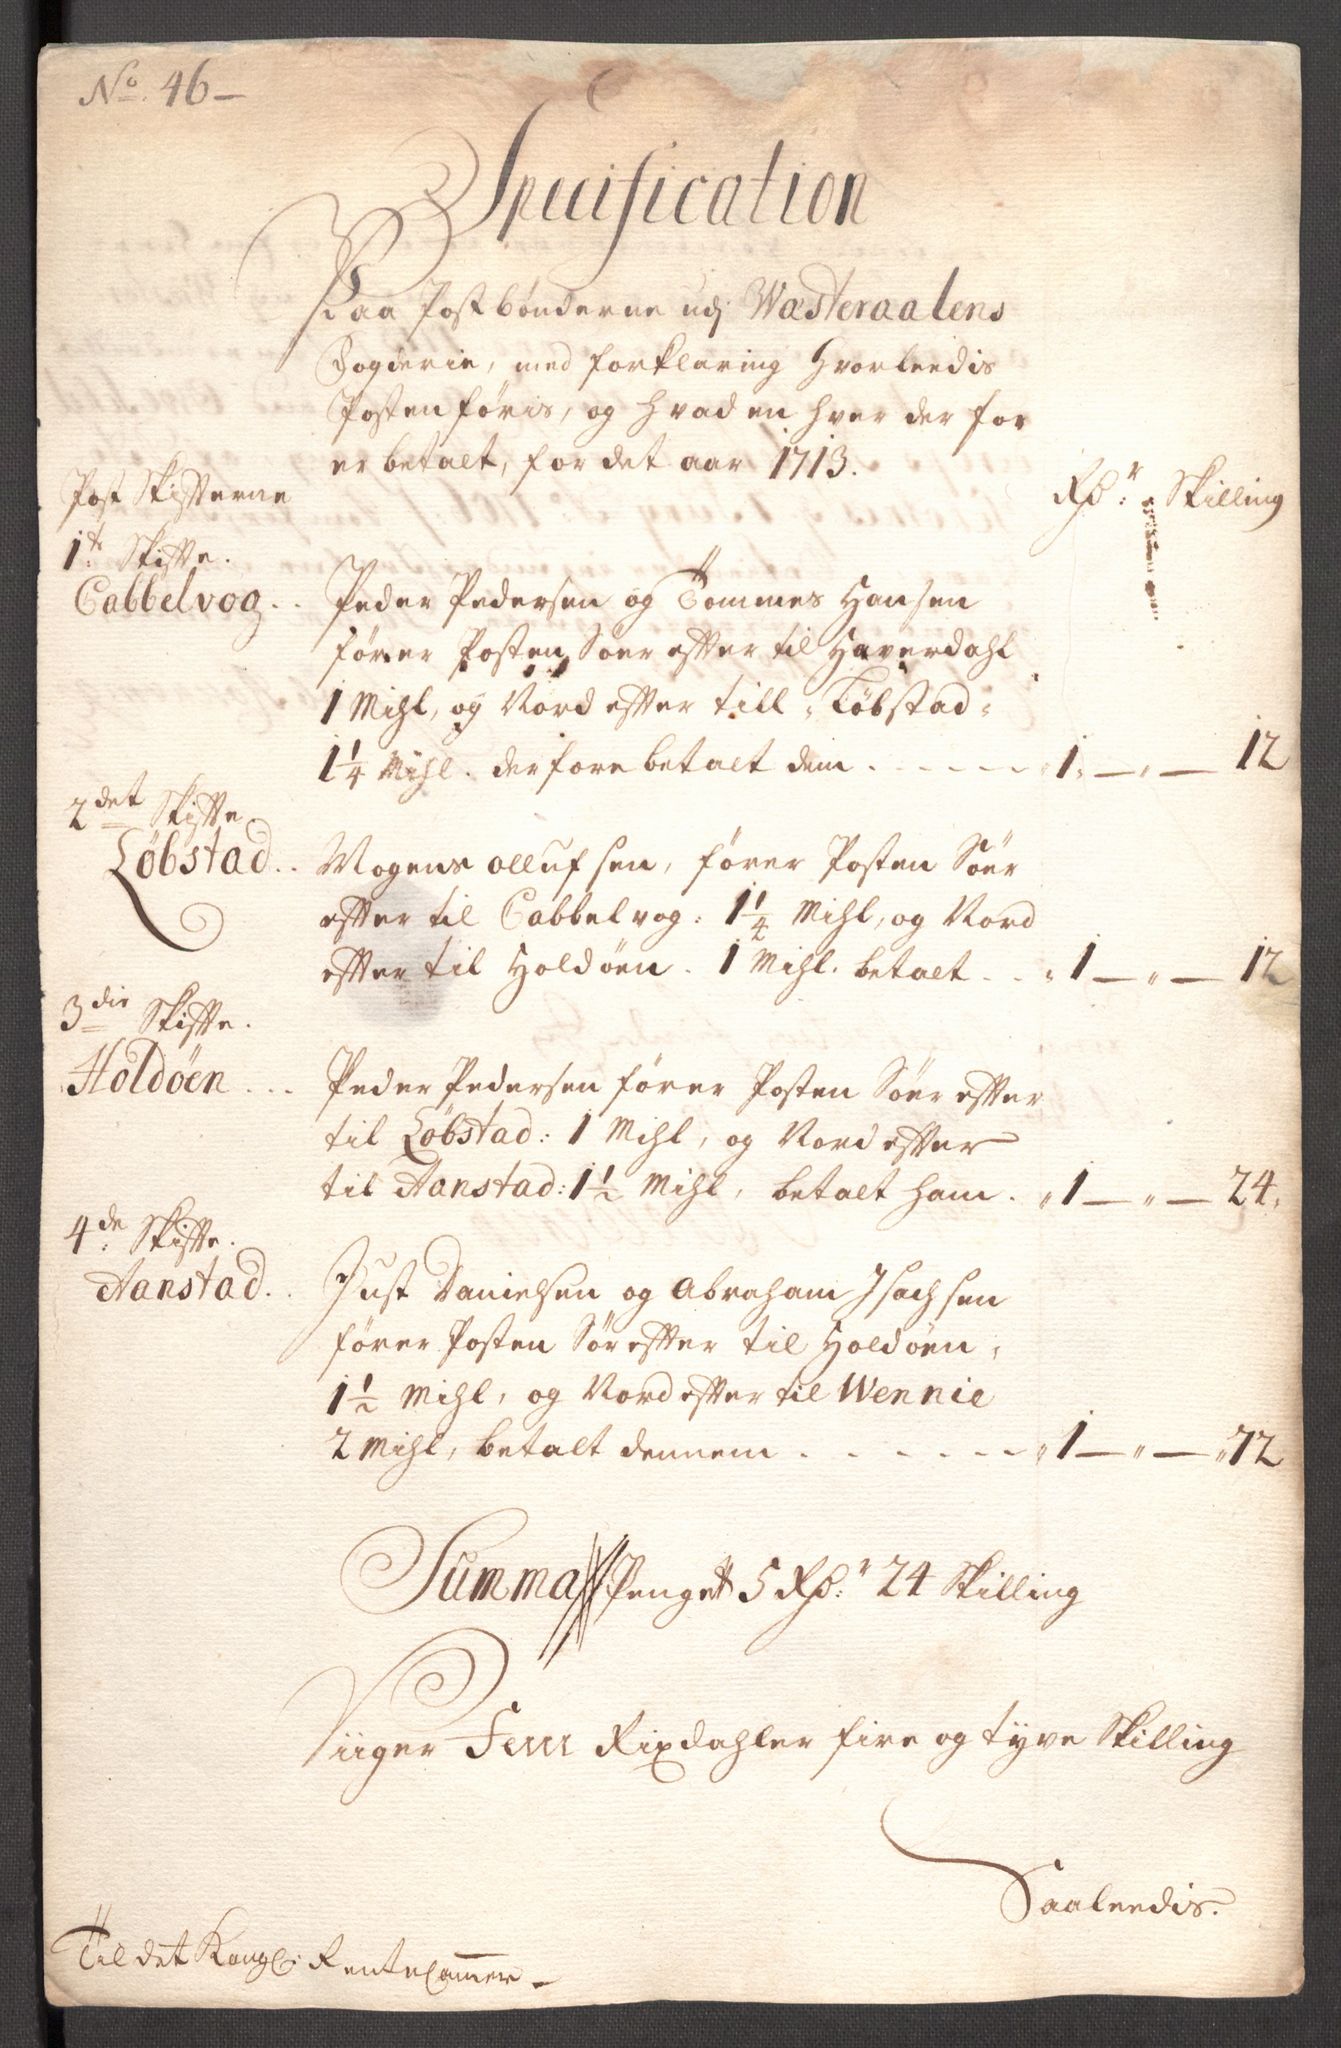 No. 46 —
Specification
Paa Postbønderne udj Wæsteraalens
Fogderie, med forklaring hvorleedis
Posten føris, og hvad en hver der for
er betalt, for det aar 1713.
Post Skifterne
Rdr: Skilling
1te Skifte.
Cabbelvog . . Peder Pedersen og Tommes Hansen
fører Posten Søer effter til Haverdahl
1 Mihl, og Nord effter till Løbstad
1 1/4 Mihl. derfore betalt dem . . . . . 1 — " — 12
2det Skifte
Løbstad . . Mogens Ollufsen, fører Posten Søer
effter til Cabbelvog: 1 1/4 Mihl, og Nord
effter til Holdøen. 1 Mihl. betalt . . . 1 — " — 12
3die Skifte.
Holdøen . . . Peder Pedersen fører Posten Søer effter
til Løbstad: 1 Mihl, og Nord effter
til Aanstad: 1 1/2 Mihl, betalt ham . " 1 — " — 24
4de Skifte.
Aanstad. . Just Danielsen og Abraham Isachsen
fører Posten Sør effter til Holdøen,
1 1/2 Mihl, og Nord effter til Wennie
2 Mihl, betalt dennem . . . . . . " 1 — " — " 72
Summa Penge 5 Rdr: 24 Skilling
Siiger Fem Rixdahler fire og tyve Skilling
Saaleedis.
Til det Kongl: RenteCammer —